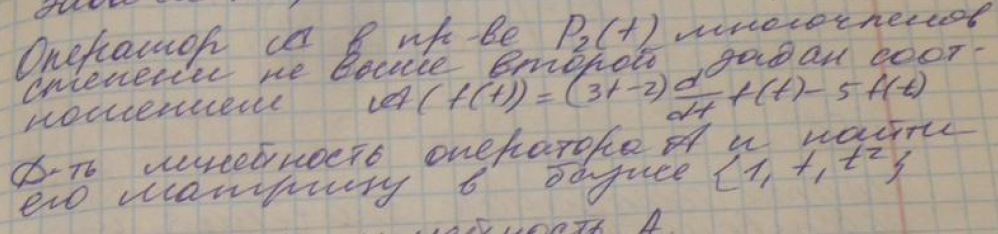 Оператор A в пр-ве P₂(t) многочленов
степени не выше второй задан соот-
ношением A(f(t)) = (3t-2) d/dt f(t) - 5f(t)
Д-ть линейность оператора A и найти
его матрицу в базисе {1, t, t²}